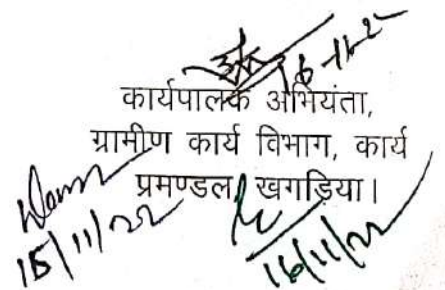 16-11-2
कार्यपालक अभियंता,
ग्रामीण कार्य विभाग, कार्य
प्रमण्डल, खगड़िया।
15/11/22
16/11/22